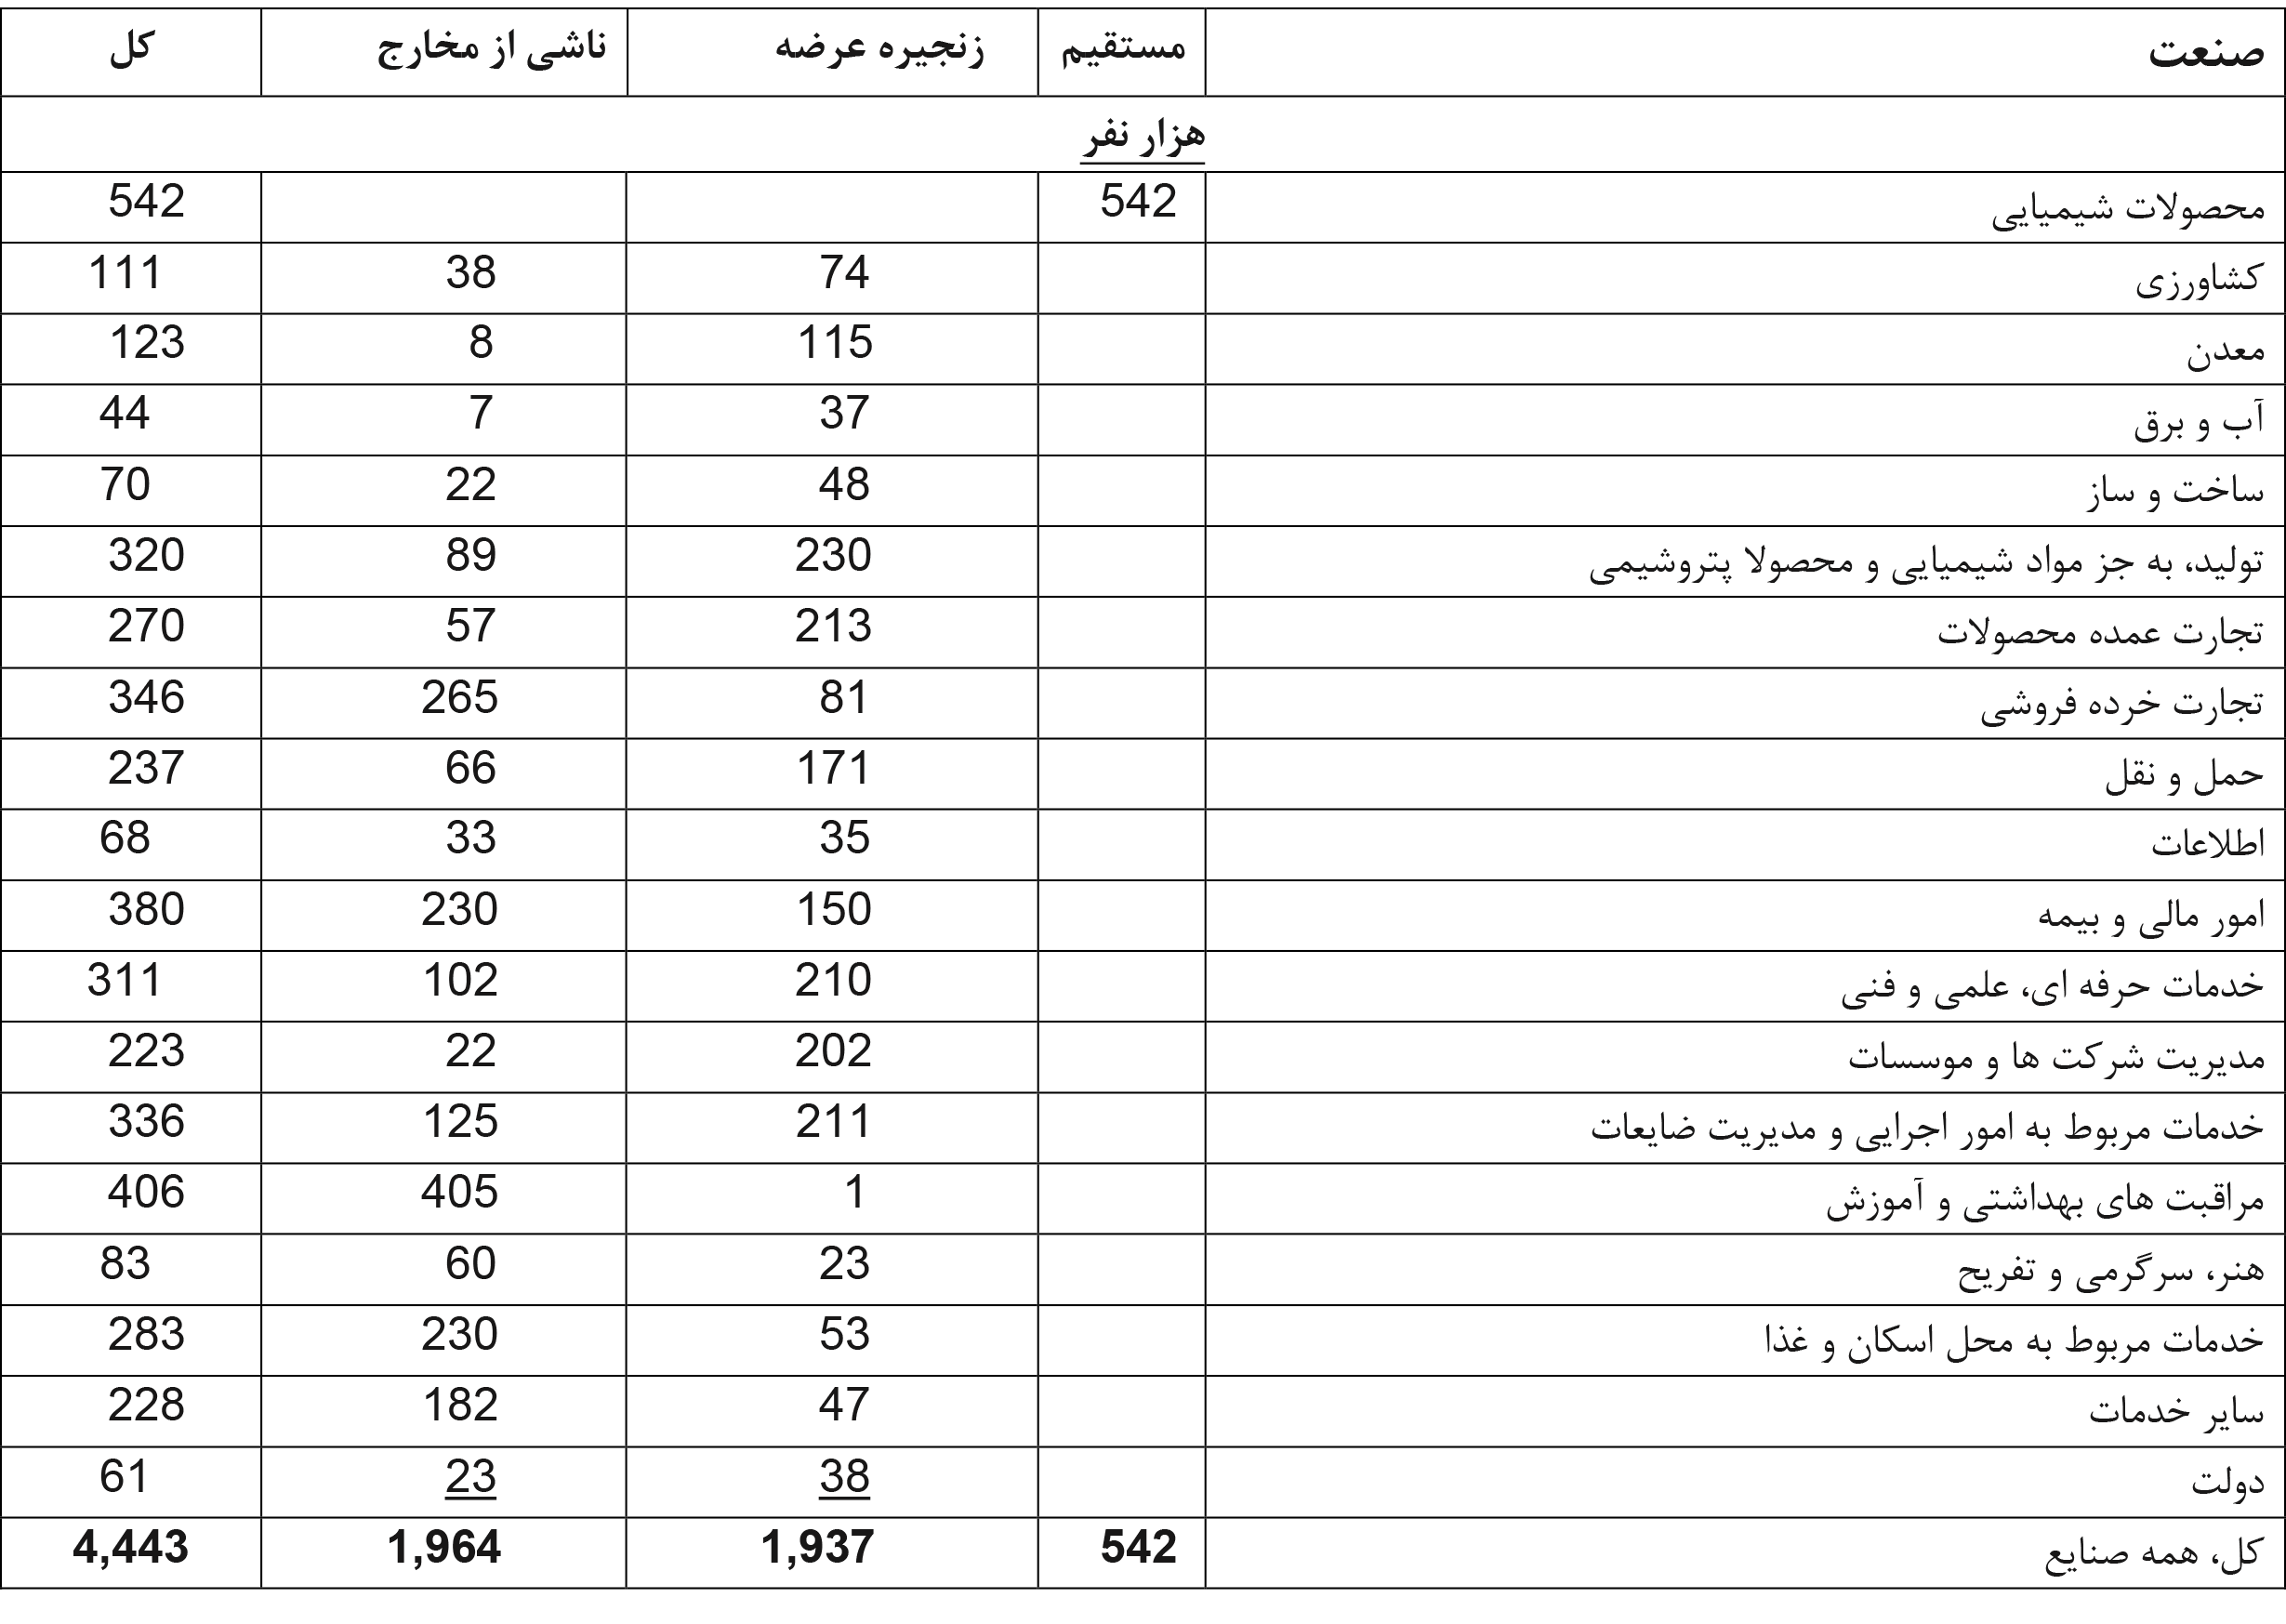 صنعت مستقیم زنجیره عرضه ناشی از مخارج کل
هزار نفر
محصولات شیمیایی 542 542
کشاورزی 74 38 111
معدن 115 8 123
آب و برق 37 7 44
ساخت و ساز 48 22 70
تولید، به جز مواد شیمیایی و محصولا پتروشیمی 230 89 320
تجارت عمده محصولات 213 57 270
تجارت خرده فروشی 81 265 346
حمل و نقل 171 66 237
اطلاعات 35 33 68
امور مالی و بیمه 150 230 380
خدمات حرفه ای، علمی و فنی 210 102 311
مدیریت شرکت ها و موسسات 202 22 223
خدمات مربوط به امور اجرایی و مدیریت ضایعات 211 125 336
مراقبت های بهداشتی و آموزش 1 405 406
هنر، سرگرمی و تفریح 23 60 83
خدمات مربوط به محل اسکان و غذا 53 230 283
سایر خدمات 47 182 228
دولت 38 23 61
کل، همه صنایع 542 1,937 1,964 4,443